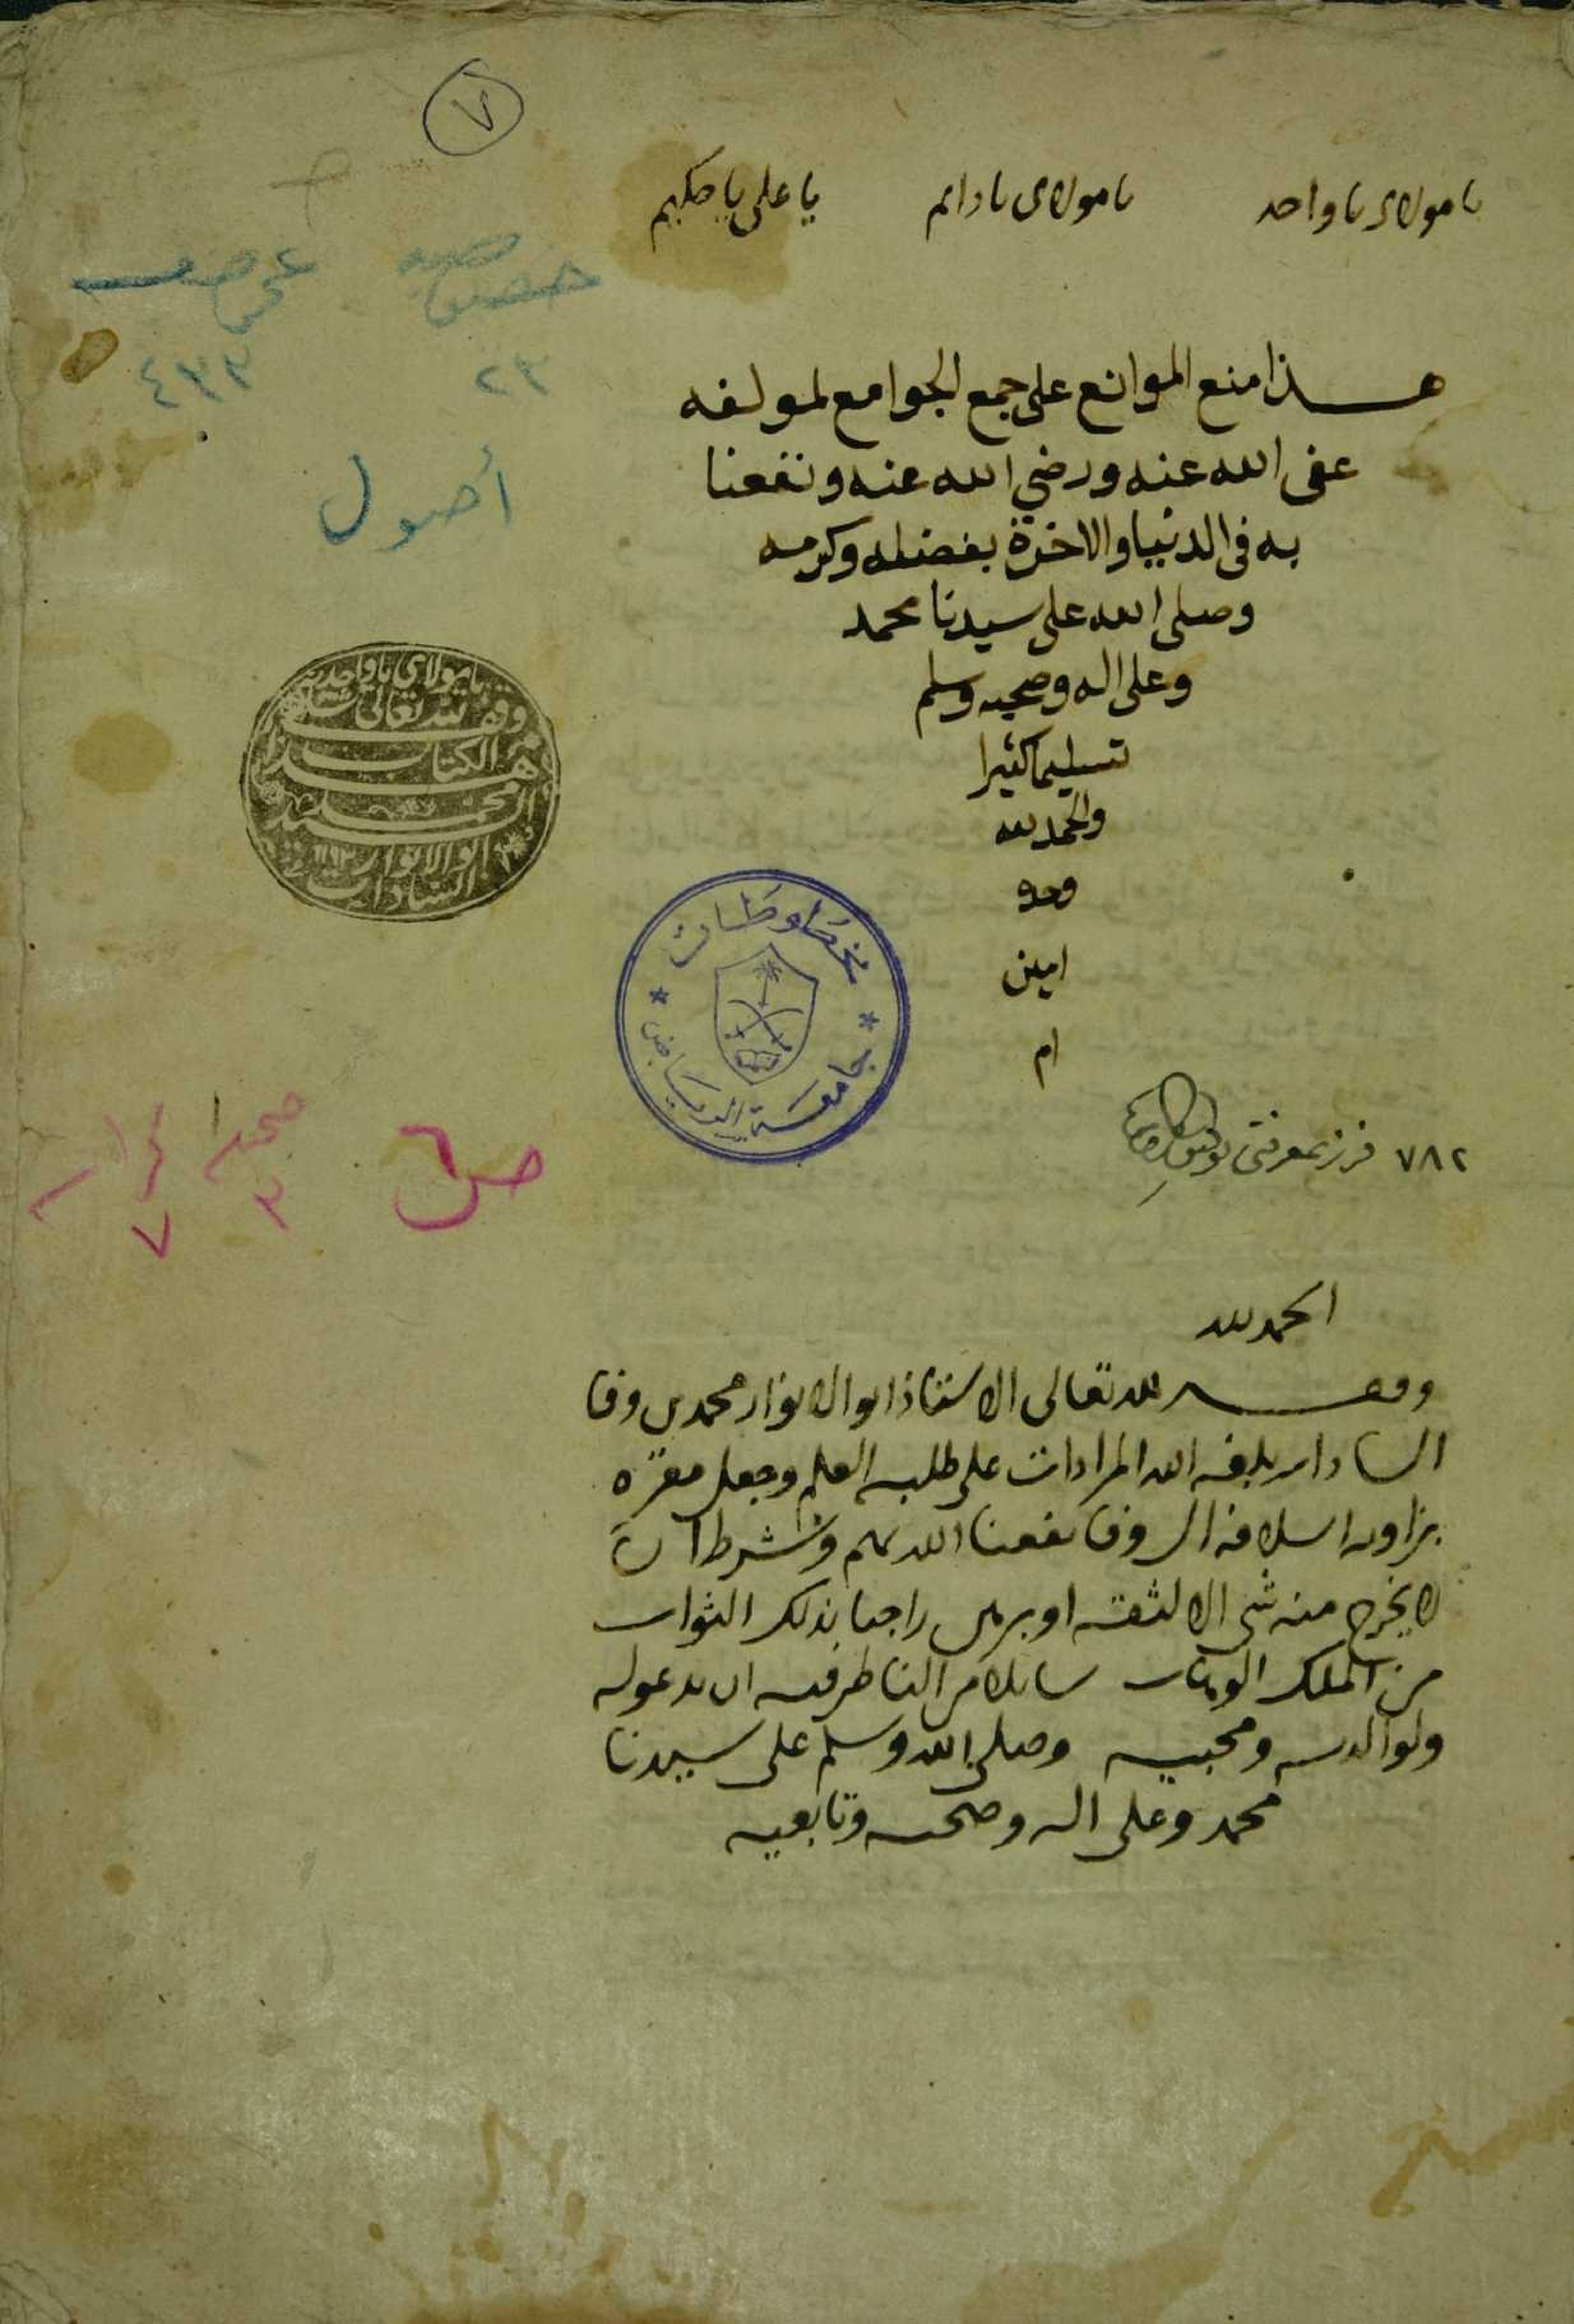 ٧
يا مولاى يا واحد يا مولاى يا دايم يا على يا حكيم
خصوصيه عموميه
٢٣ ٤٣٣
أصول
هذا منع الموانع على جمع الجوامع لمولفه
عفى الله عنه ورضي الله عنه ونفعنا
به فى الدنيا والاخرة بفضله وكرمه
وصلى الله على سيدنا محمد
وعلى اله وصحبه وسلم
تسليما كثيرا
والحمد لله
وحده
امين
ام
يا مولاي يا واحد
وقف لله تعالى
هذا الكتاب
محمد
ابو الانوار
السادات
مخطوطات
جامعة الرياض
٧٨٢ فرز بمعرفتى
ص
٣
٧
الحمد لله
وقف لله تعالى الاستاذ ابو الانوار محمد بن وفا
السادات بلغه الله المرادات على طلبه العلم وجعل مقره
بزاوية اسلافه ال وفا نفعنا الله بهم وشرط ان
لا يخرج منه شى الا لثقه او برهن راجيا بذلك الثواب
من الملك الوهاب سايلا من الناظر فيه ان يدعو له
ولوالديه ومحبيه وصلى الله وسلم على سيدنا
محمد وعلى اله وصحبه وتابعيه